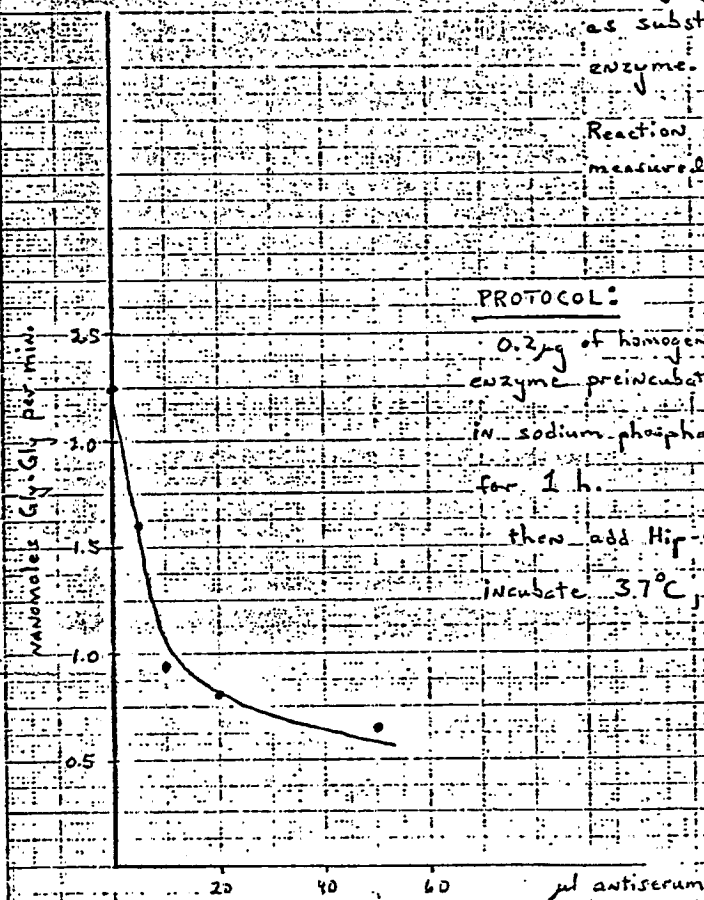 as subst
enzyme.
Reaction
measured
PROTOCOL:
0.2 µg of homogen
enzyme preincubat
in sodium phospha
for 1 h.
then add Hip-
incubate 3.7°C;
NANOMOLES Gly-Gly per min.
2.5
2.0
1.5
1.0
0.5
20 40 60 µl antiserum